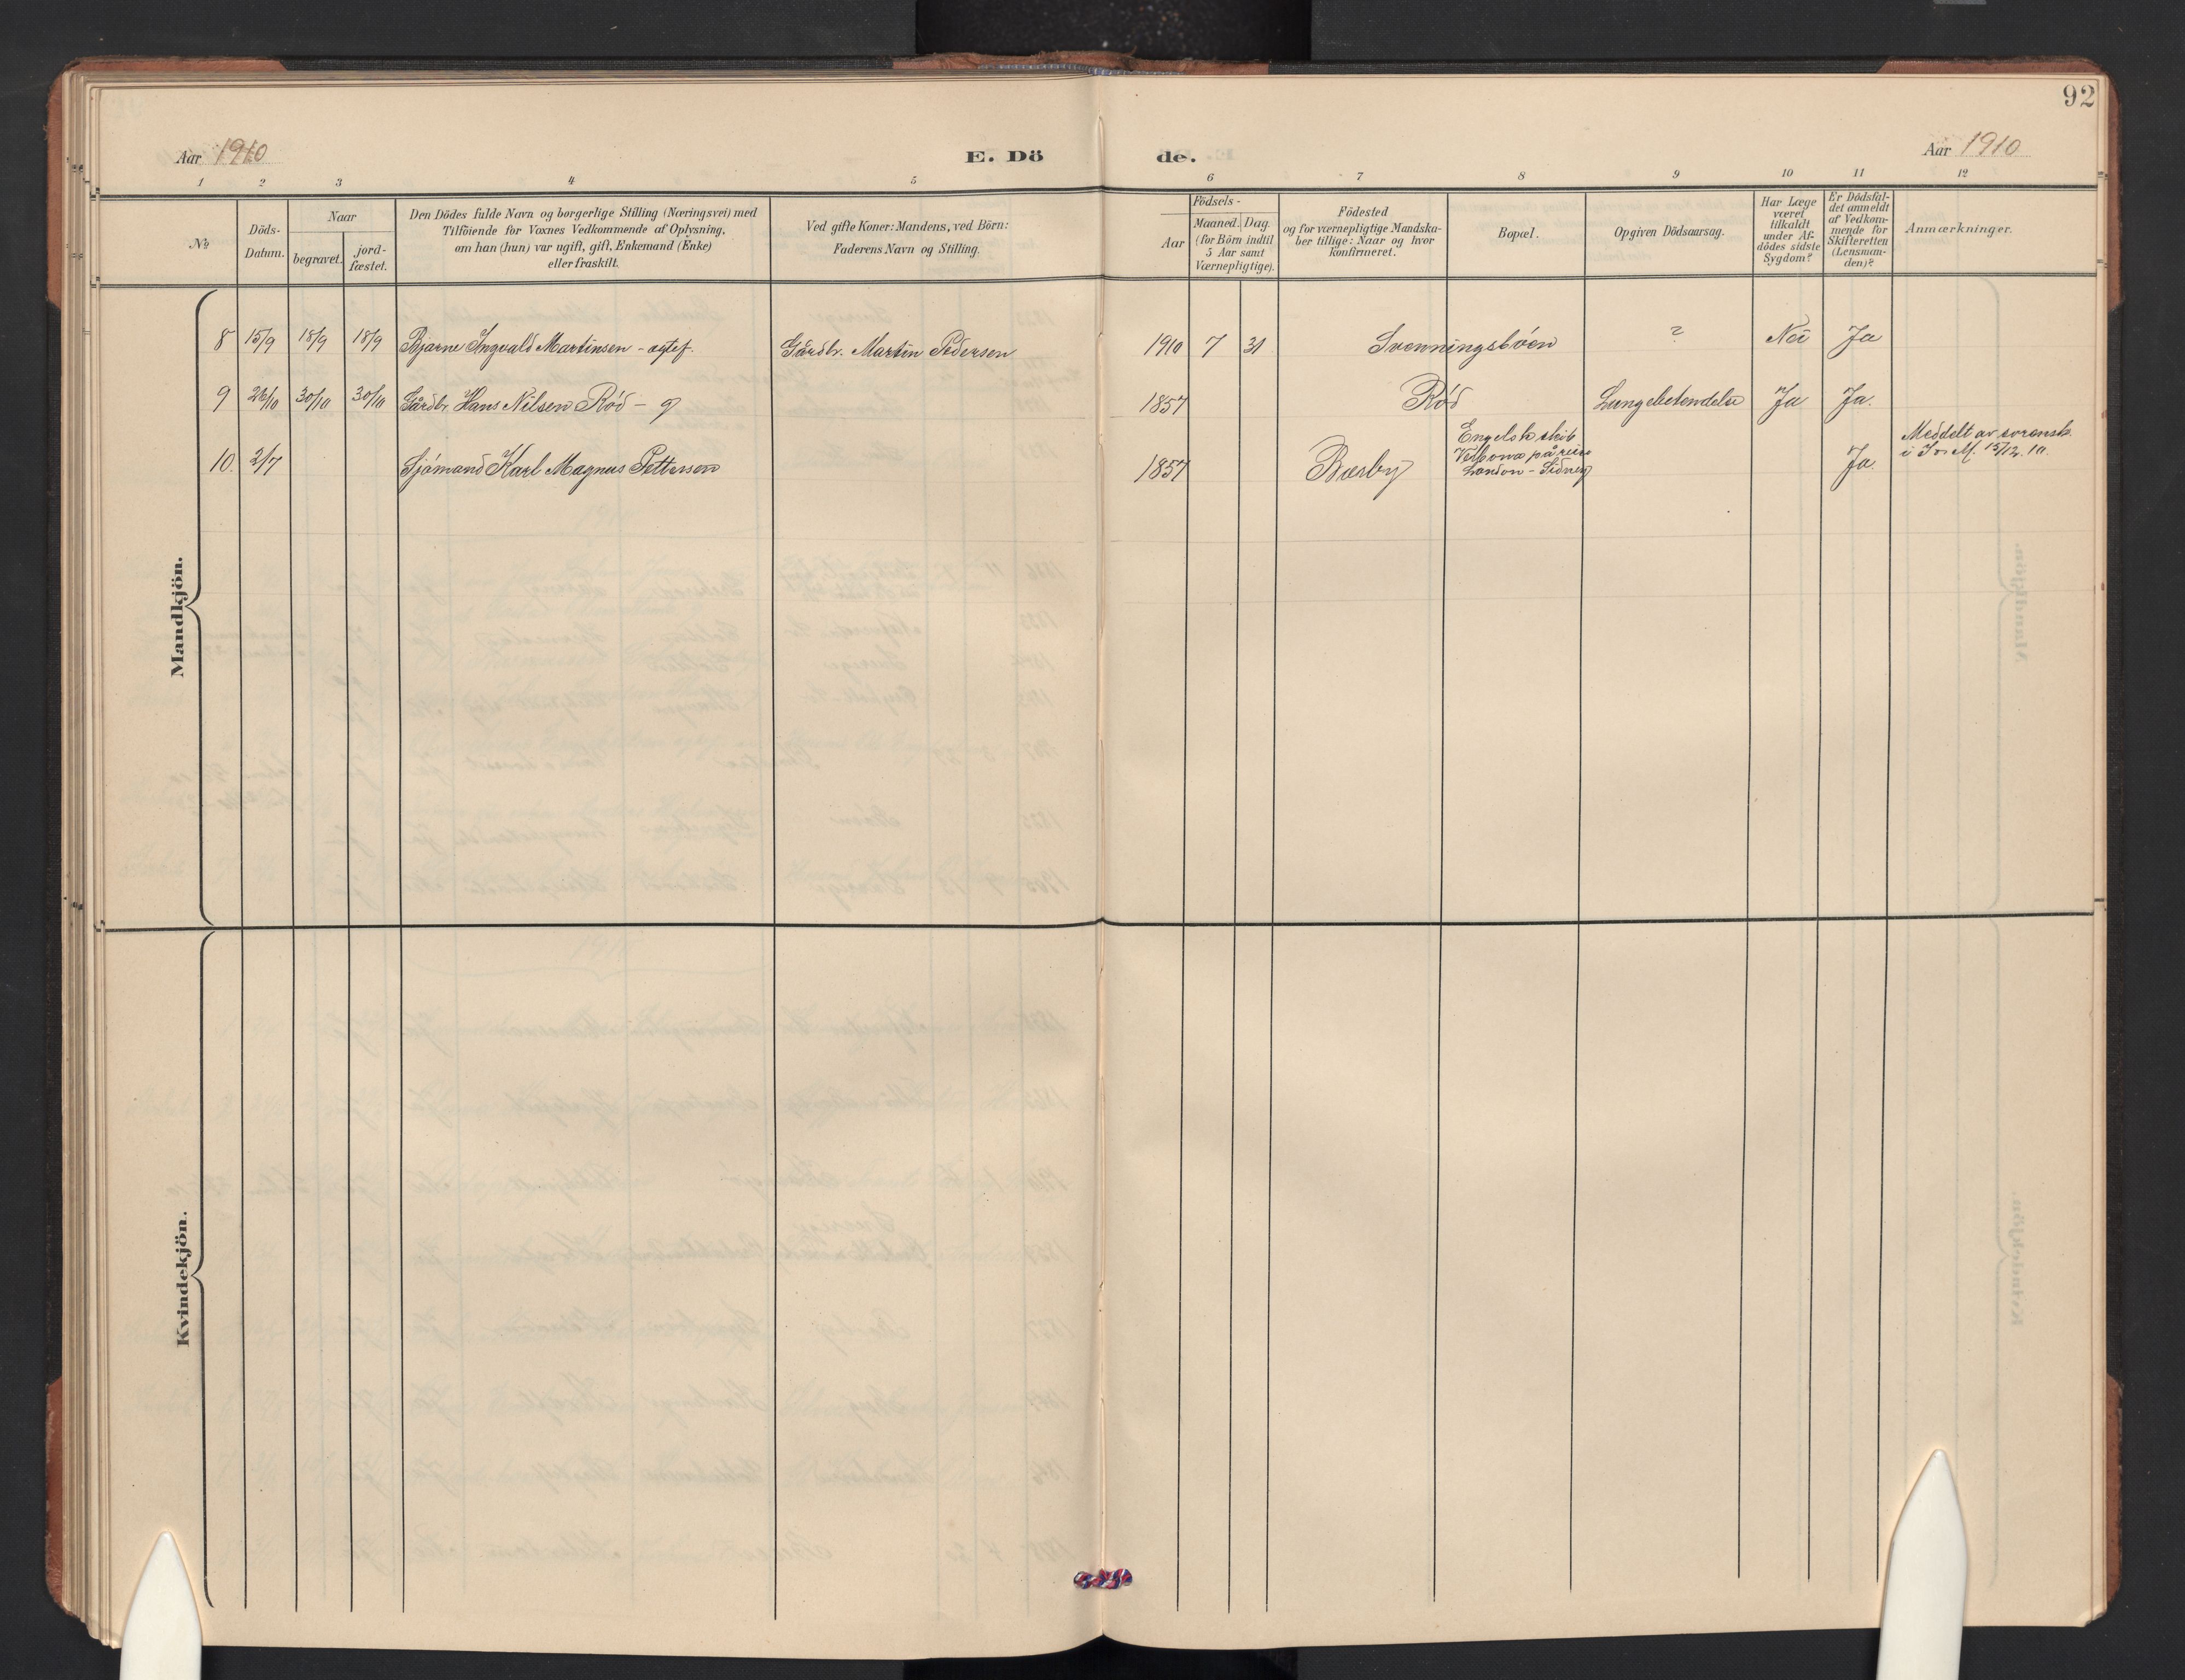 92
Aar 1910 E. Dö de. Aar 1910
1 2 3 4 5 6 7 8 9 10 11 12
№
Döds-
Datum.
Naar
begravet.
jord-
fæstet.
Den Dödes fulde Navn og borgerlige Stilling (Næringsvei) med
Tilföiende for Voxnes Vedkommende af Oplysning,
om han (hun) var ugift, gift, Enkemand (Enke)
eller fraskilt.
Ved gifte Koner: Mandens, ved Börn:
Faderens Navn og Stilling.
Födsels-
Aar
Maaned. Dag.
(for Börn indtil
5 Aar samt
Værnepligtige).
Födested
og for værnepligtige Mandska-
ber tillige: Naar og hvor
konfirmeret.
Bopæl.
Opgiven Dödsaarsag.
Har Læge
været
tilkaldt
under Af-
dödes sidste
Sygdom?
Er Dödsfal-
det anmeldt
af Vedkom-
mende for
Skifteretten
(Lensman-
den)?
Anmærkninger.
Mandkjön.
8 15/9 18/9 18/9 Bjarne Ingvald Martinsen - ægtef. Gårdbr. Martin Pedersen 1910 7 31 Svenningsbøen ? Nei Ja
9 26/10 30/10 30/10 Gårdbr. Hans Nilsen Rød - g 1857 Rød Lungebetendelse Ja Ja.
10. 2/7 Sjømand Karl Magnus Pettersen 1857 Bærby
Engelsk skib
på reise
London - Sidney
Ja.
Meddelt av sorensk.
i I. o. M. 15/12. 10.
Kvindekjön.